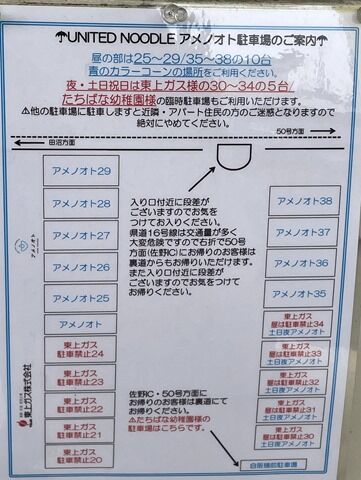 ☂UNITED NOODLE アメノオト駐車場のご案内☂
昼の部は25～29/35～38の10台
青のカラーコーンの場所をご利用ください。
夜・土日祝日は東上ガス様の30～34の5台/
たちばな幼稚園様の臨時駐車場もご利用いただけます。
⚠他の駐車場に駐車しますと近隣・アパート住民の方のご迷惑となりますので
絶対にやめてください。
田沼方面
50号方面
アメノオト29
アメノオト28
アメノオト27
アメノオト26
アメノオト25
アメノオト
東上ガス
駐車禁止24
東上ガス
駐車禁止23
東上ガス
駐車禁止22
東上ガス
駐車禁止21
東上ガス
駐車禁止20
アメノオト
東上ガス株式会社
入り口付近に段差が
ございますのでお気を
つけてお入りください。
県道16号線は交通量が多く
大変危険ですので右折で50号
方面(佐野IC)にお帰りのお客様は
裏道からもお帰りいただけます。
また入り口付近に段差が
ございますのでお気をつけて
お帰りください。
佐野IC・50号方面に
お帰りのお客様は裏道にて
お帰りください。
⚠たちばな幼稚園様の
駐車場はこちらです。
アメノオト38
アメノオト37
アメノオト36
アメノオト35
東上ガス
昼は駐車禁止34
土日夜アメノオト
東上ガス
昼は駐車禁止33
土日夜アメノオト
東上ガス
昼は駐車禁止32
土日夜アメノオト
東上ガス
昼は駐車禁止31
土日夜アメノオト
東上ガス
昼は駐車禁止30
土日夜アメノオト